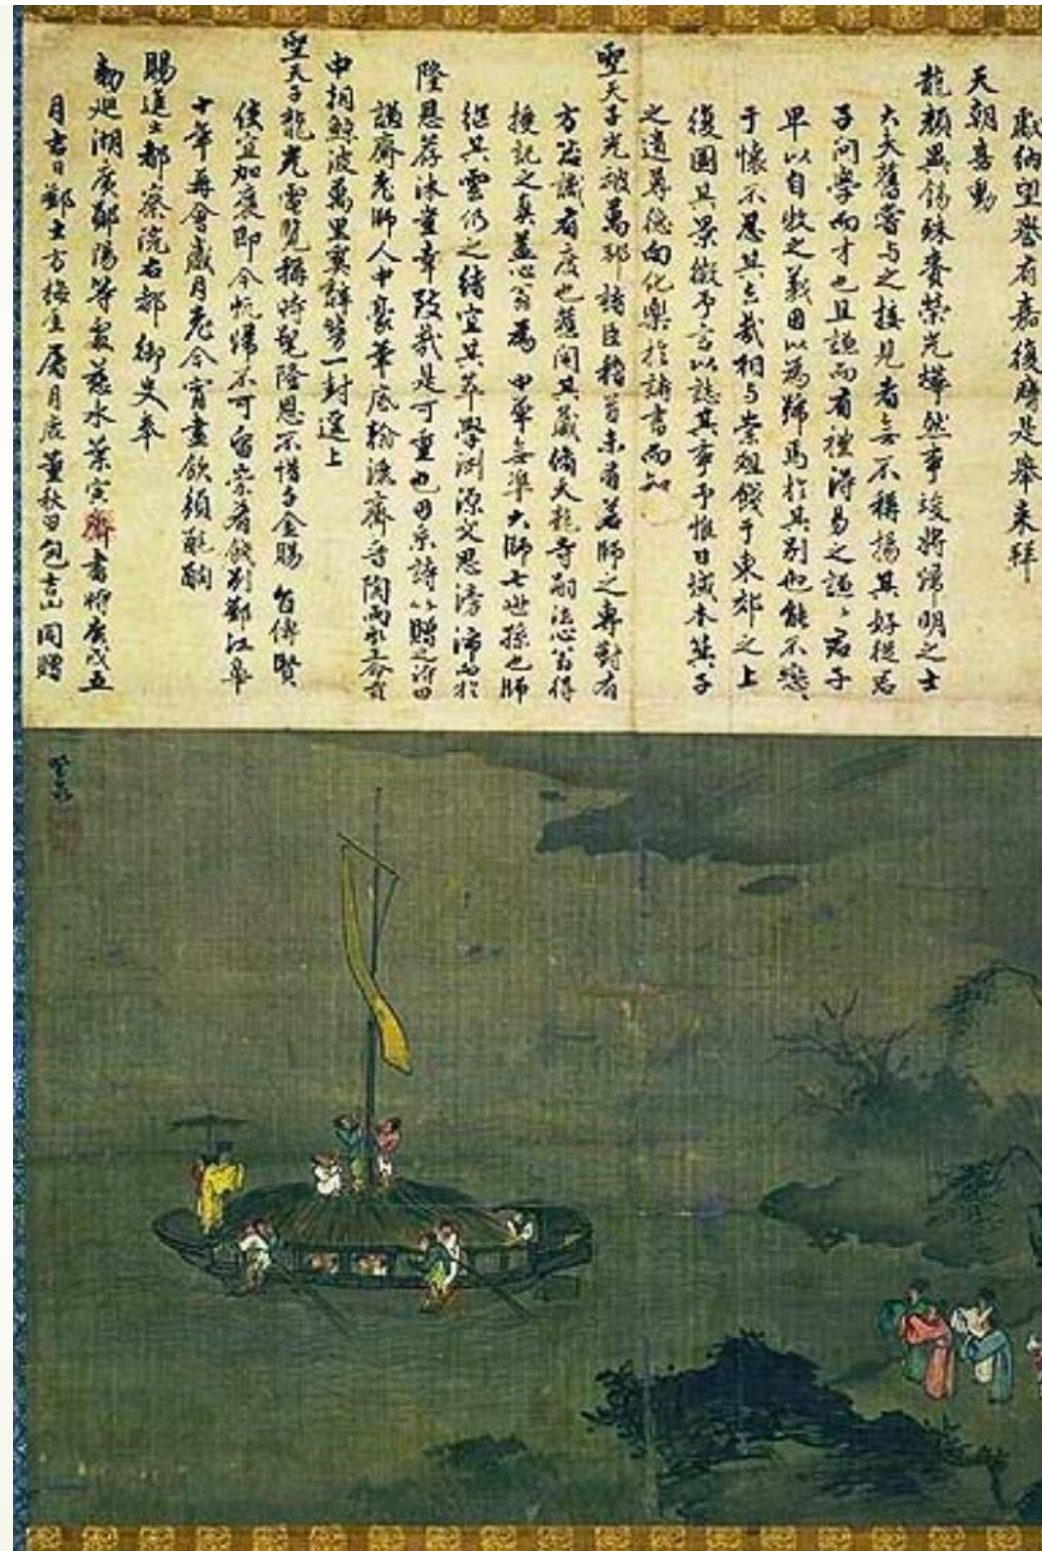 獻納望譽有嘉復膺是舉來拜
天朝喜動
龍顏異錫殊賚榮光燁然事竣將歸明之士
大夫舊嘗与之接見者無不稱揚其好從君
子問學而才也且謙而有禮得易之謙〻君子
早以自牧之義因以為號焉於其別也能不戀〻
于懷不忍其去哉相与崇俎餞于東郊之上
復圖其景徵予言以誌其事予惟日域木箕子
之遺尊德向化樂於詩書而知
聖天子光被萬邦諸臣稽首未有若師之專對有
方咨議有度也舊聞其歲脩天龍寺嗣法心翁得
授記之真蓋心翁為 中華無準大師七世孫也師
繼其雲仍之緒宜其萃學淵源文思滂沛而於
隆恩荐沐寔幸致哉是可重也因系詩以贈之詩曰
謙齋老師人中豪筆底翰
申捐鯨波萬里寞辭勞一封選上
聖天子龍光電覽稱時髦隆恩不惜千金賜 旨俾賢
使宜加褒即今忻歸不可留崇肴餞別鄞江皐
十年再會歲月老今宵盡飲頻酕醄
賜進士都察院右都御史奉
勅廵湖廣鄖陽等處慈水葉寅齋書時庚戌五
月吉日鄞士方梅厓屠月鹿董秋田包吉山同贈